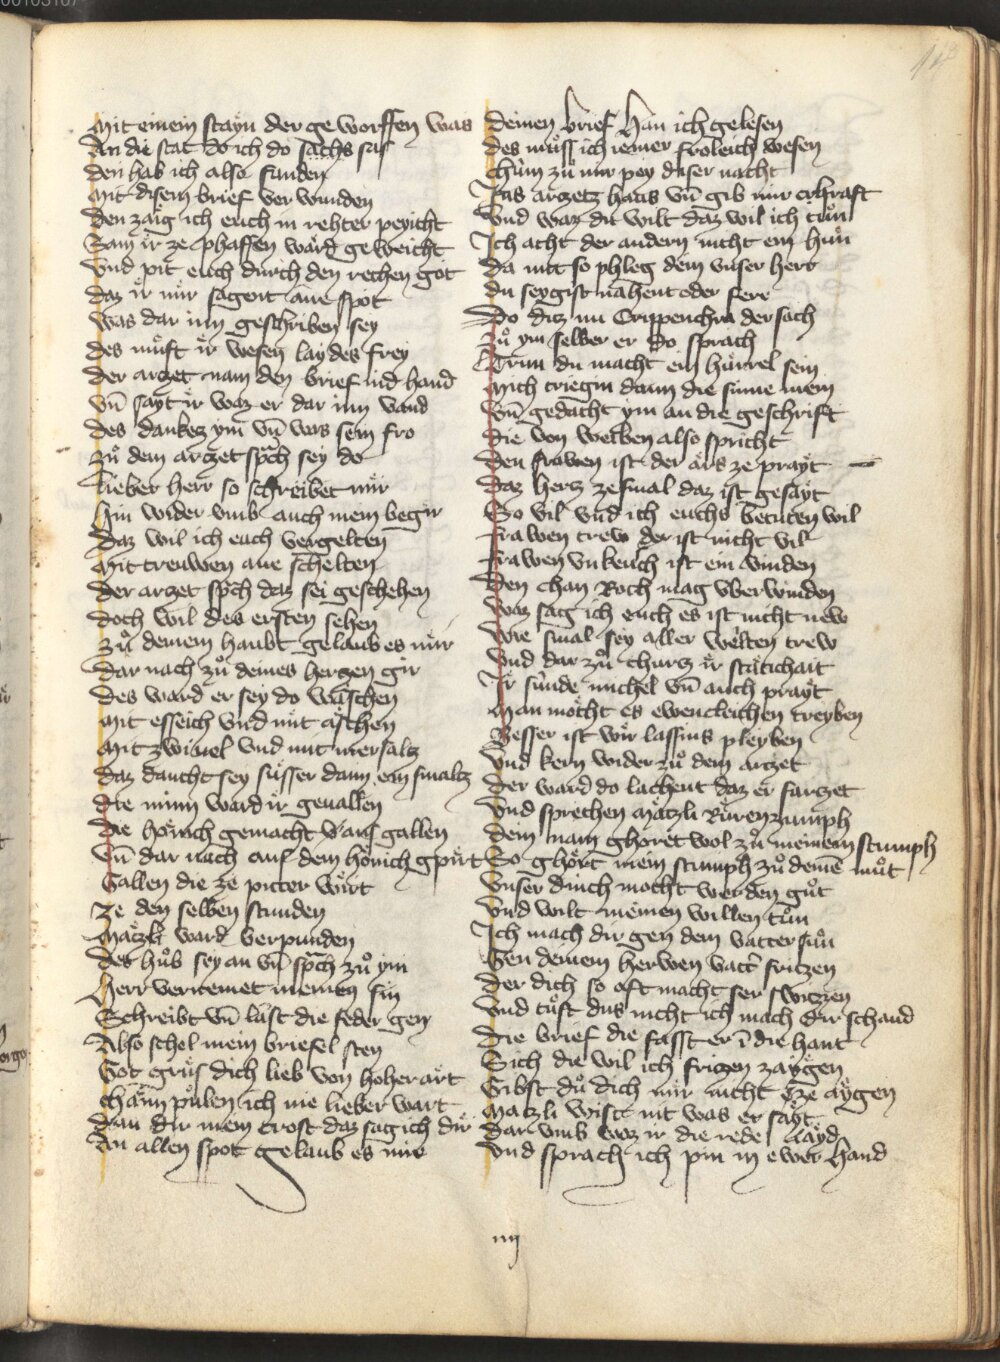 Mit einem stayn der geworffen was
An die stat do ich do sachs sas
Den hab ich also funden
Mit disem brief verwunden
Den zaig ich euch in rehter peyicht
Sam ir ze phaffen wård geweicht
Vnd pit euch durch den rechen got
Daz ir mir sagent ane spot
Was dar inn geschriben sey
Des müst ir wesen laydes frey
Der arczet nam den brief ind hand
Vn̄ sayt ir waz er dar inn vand
Des dankcz ym vn̄ was sein fro
Zů dem arczet sp̄ch sey do
Lieber herr so schreibet mir
Hin wider vmb auch mein begir
Daz wil ich euch vergelten
Mit treuwen ane schelten
Der arczet sp̄ch daz sei geschehen
Doch wil des ersten sehen
Zů deinem haubt gelaub es mir
Dar nach zů deines herczen gir
Des ward er sey do wåschen
Mit esseich vnd mit åschen
Mit zwiuel vnd mit mersalcz
Daz daucht sey süsser dann ein smaltz
Die minn ward ir geuallen
Die hönich gemacht vaus gallen
Vn̄ dar nach auf dem hönich gpürt
Gallen die ze pitter wirt
Ze den selben stunden
Måczli ward verpunden
Des hůb sey an vn̄ sp̄ch zů ym
Herr vernemet meinen sin
Schreibt vn̄ låst die feder gen
Also schel mein briefel sten
Got grüs dich lieb von hoher art
Chain půlen ich nie lieber wart
Dan dir mein trost daz sag ich dir
An allen spot gelaub es mir
Deinen brief han ich gelesen
Des müss ich iemer froleich wesen
Chüm zů mir pey diser nacht
Ins arczetz haus vn̄ gib mir chraft
Vnd waz du wilt daz wil ich tůn
Ich acht der andern nicht ein hůn
Da mit so phleg dein vnser herr
Du seygist nahent oder ferr
Do ditz nu Crippenchra der sach
Zů ym selber er do sprach
Triu du macht ein hürrel sein
Mich triegin dann die sinne mein
Vn̄ gedacht ym an die geschrift
Die von weiben also spricht
Den frawen ist der års ze prayt
Daz hercz ze smal daz ist gesayt
So vil vnd ich euchs betuten wil
Frawen trew der ist nicht vil
Frawen vnkeuch ist ein vinden
Den chan noch mag vberwinden
Waz sag ich euch es ist nicht new
Wie smal sey aller welten trew
Vnd dar zů churcz ir stätichait
Ir sünde michel vn̄ auch prayt
Man mocht es ewencleichen treyben
Besser ist wir lassins pleyben
Vnd kern wider zů dem arczet
Der ward do lachent daz er farczet
Vnd sprechen måczli Rürenzumph
Dein nam ghöret wol zů meinem stumph
So ghört mein stumph zů deinē můt
Vnser dinch mocht werden gůt
Vnd wilt meinen willen tůn
Ich mach dir gen dem vatter sůn
Gen deinem herwen vatt̄ friczen
Der dich so oft macht ser swiczen
Vnd tůst dus nicht ich mach dir schand
Die brief die fasst er ī die hant
Sich die wil ich friczen zaygen
Gibst du dich mir nicht cze aygen
Maczli wist nit was er sayt
Dar vmb waz ir die rede layd
Vnd sprach ich pin in ewer hand